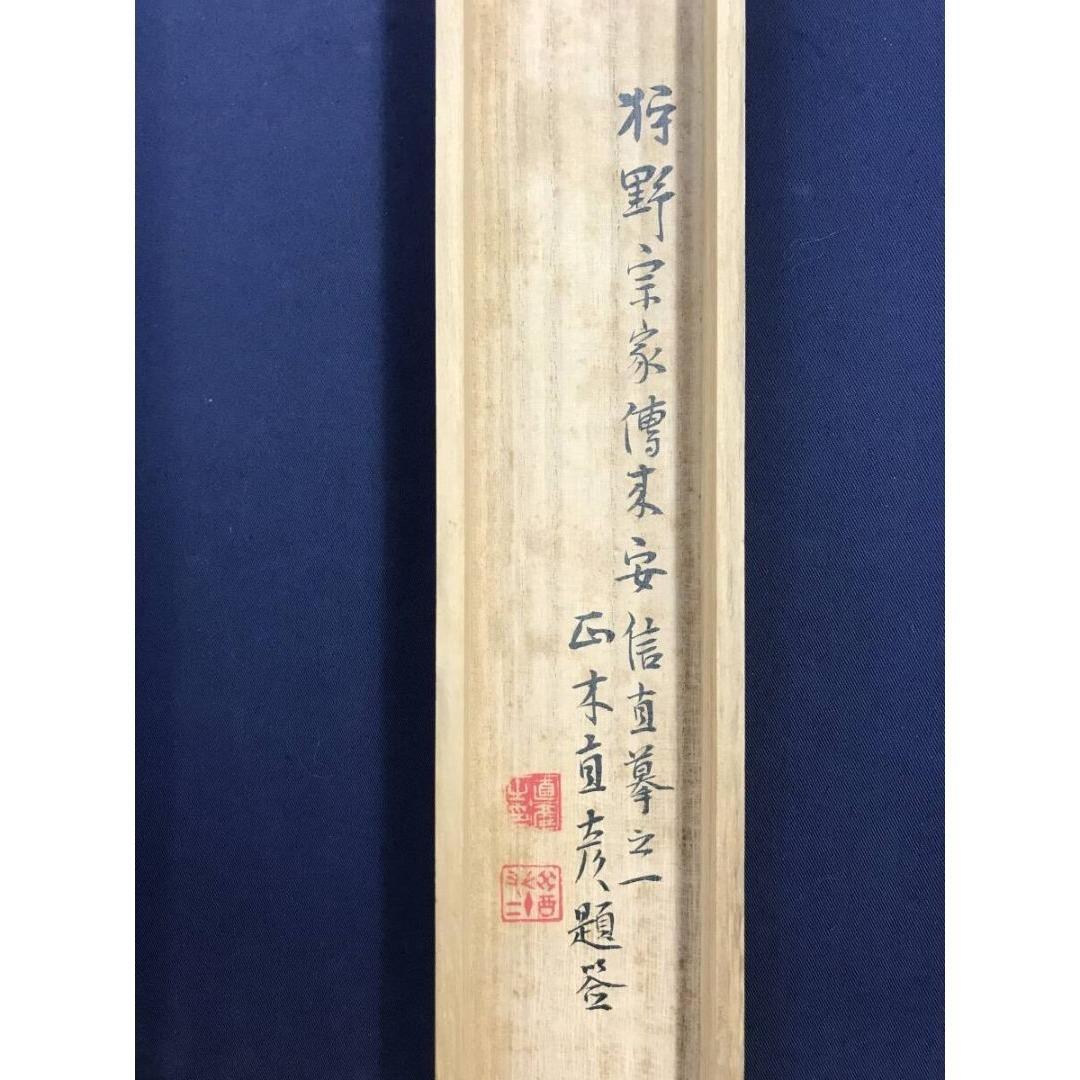 狩野宗家傳来安信直摹之一
正木直彦題簽